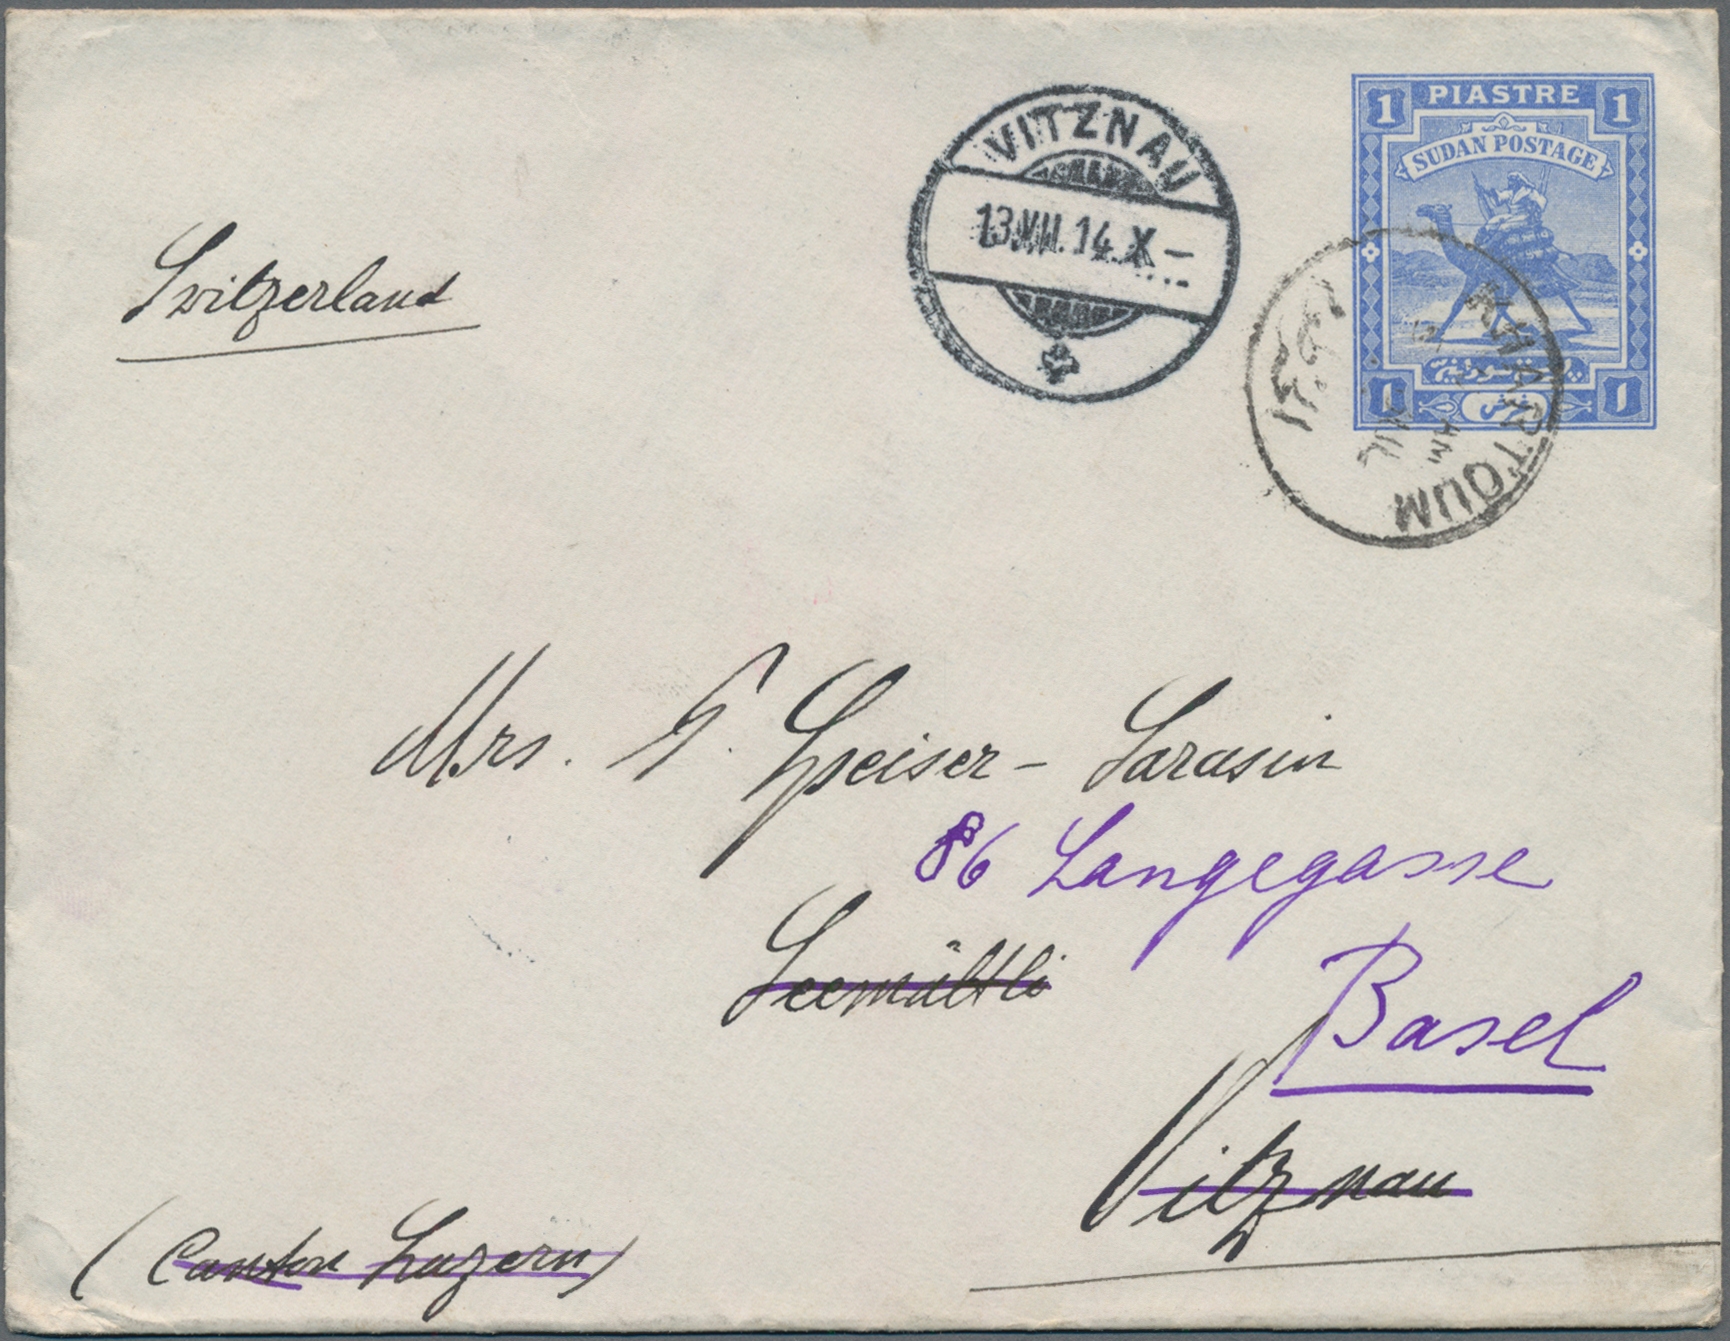 1 PIASTRE 1
SUDAN POSTAGE
١ قرش ١
VITZNAU
13.VII.14.X–
KHARTOUM
AM
Switzerland
Mrs. Speiser - Sarasin
86 Langegasse
Seemättli
Basel
Vitznau
(Canton Luzern)